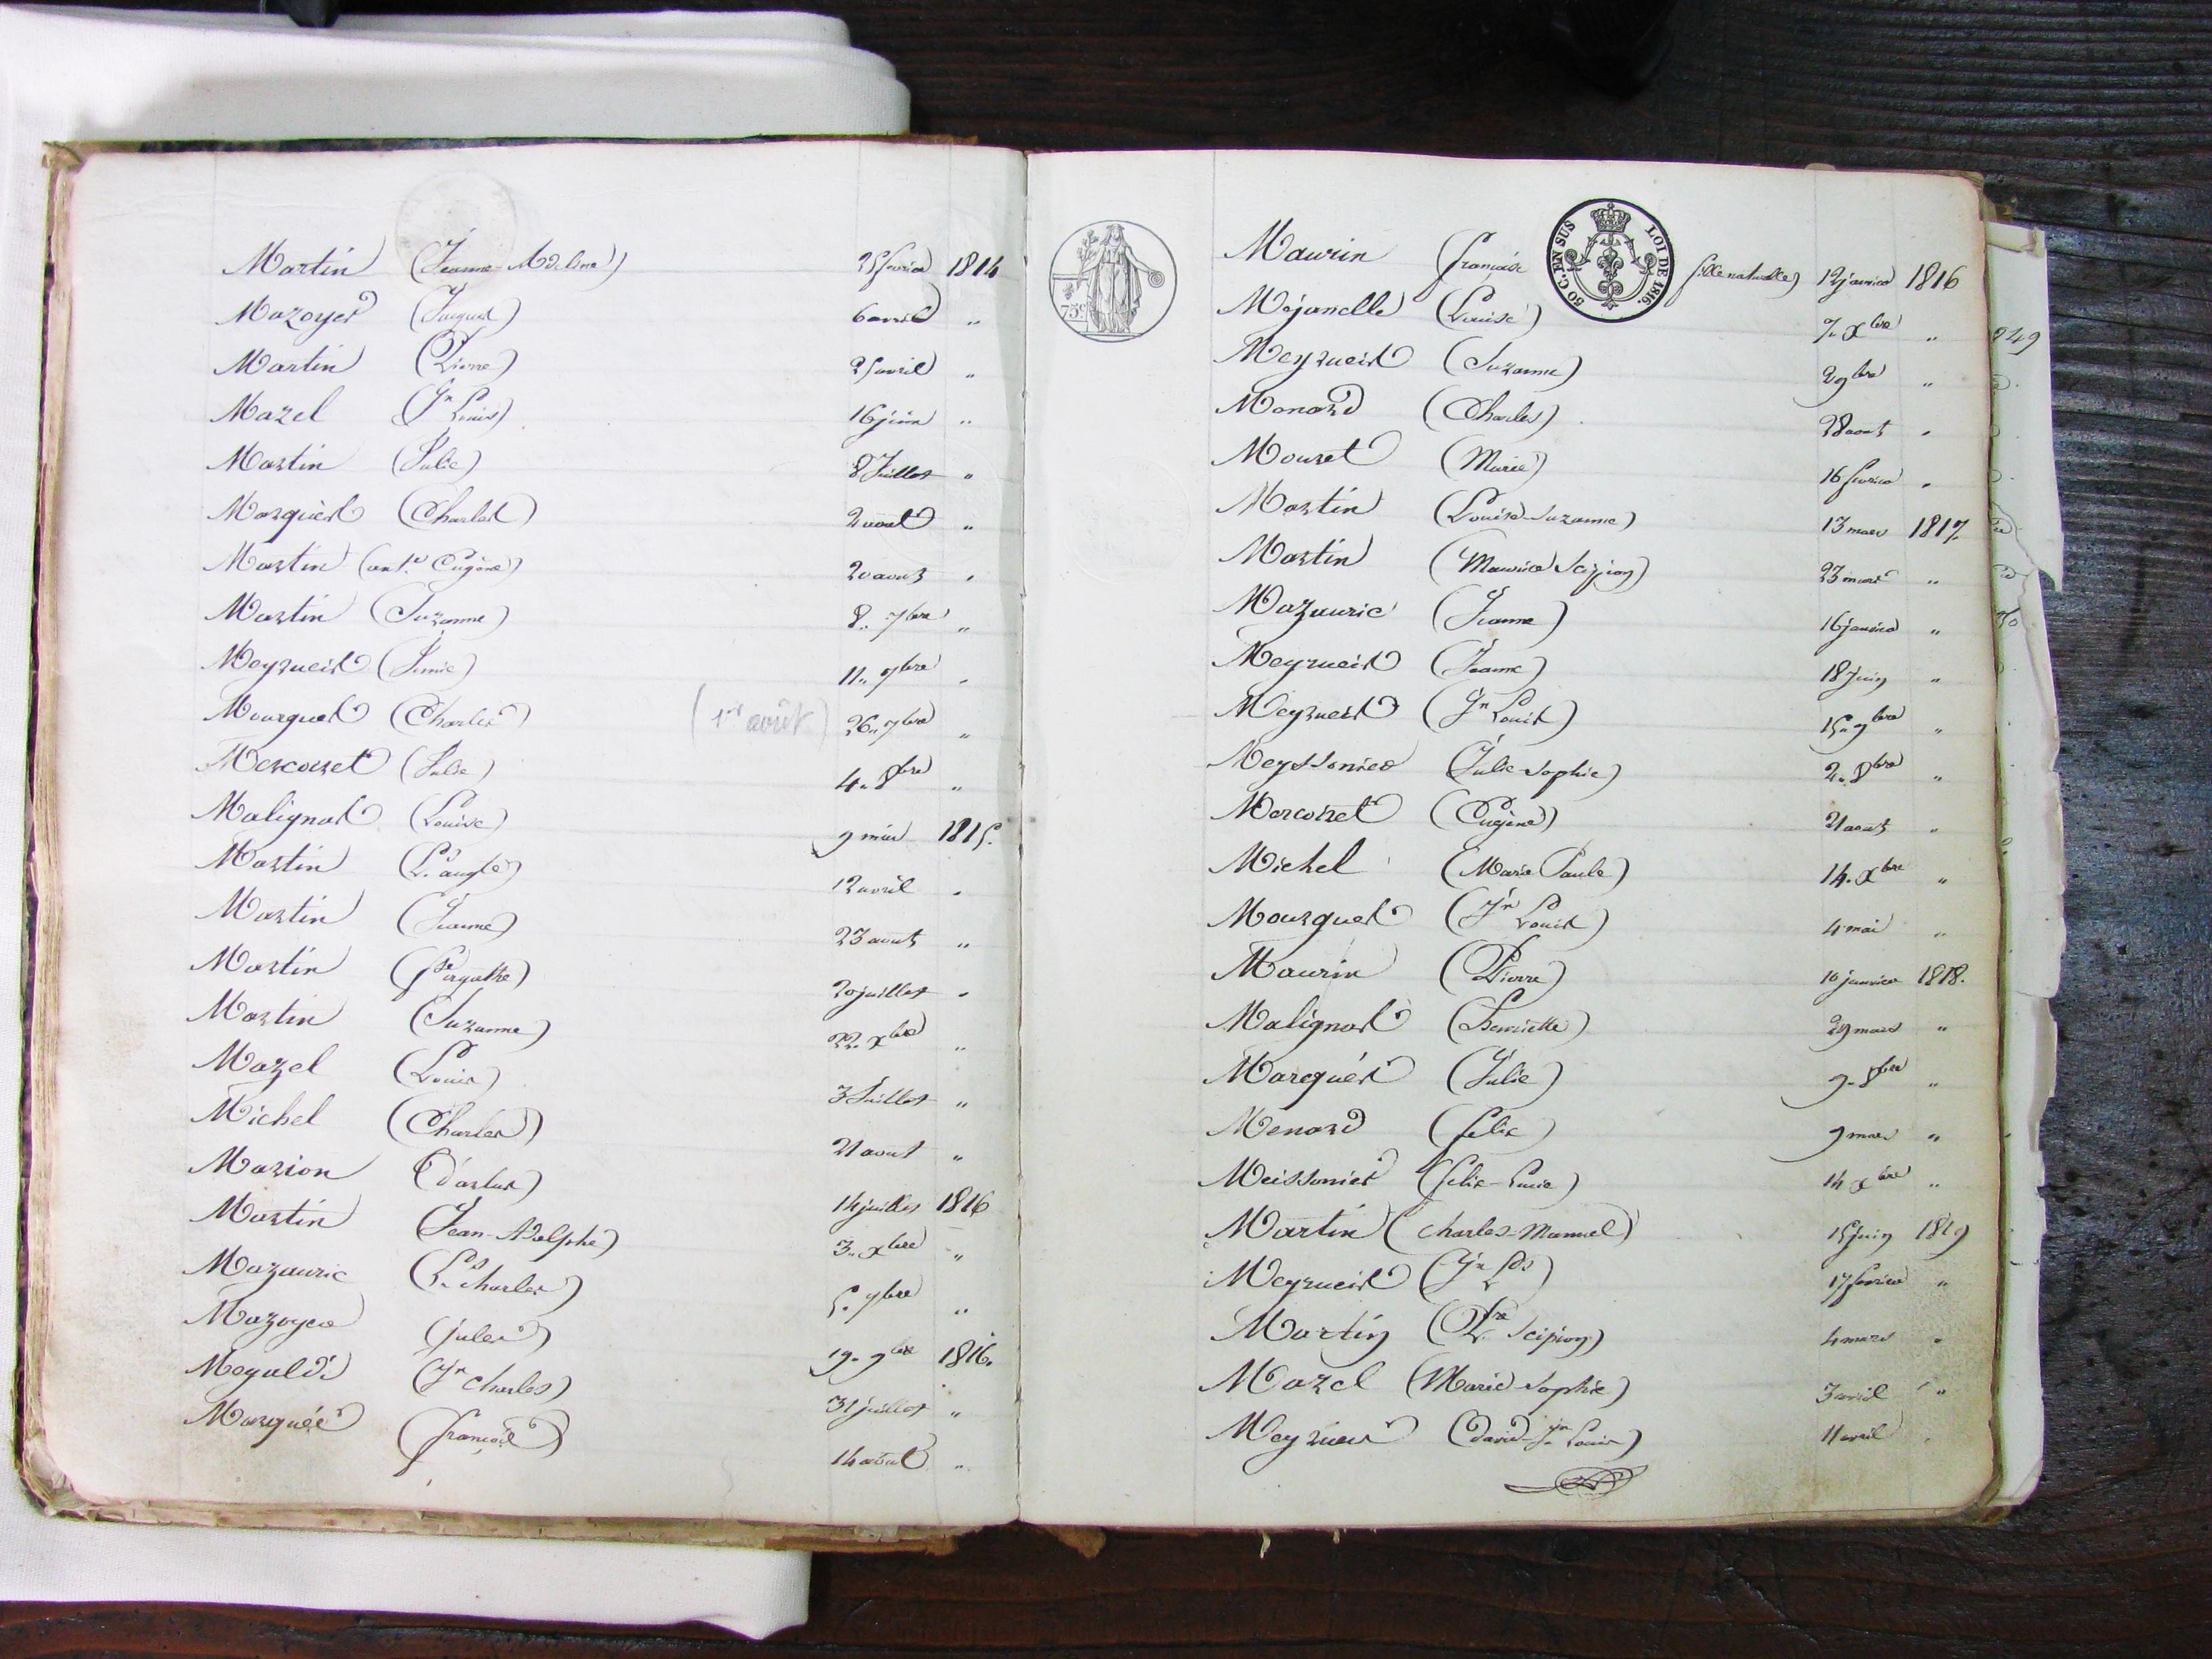 Martin (Jeanne-Adeline) 25 fevrier 1814
Mazoyer (Jacques) 6 avril "
Martin (Pierre) 25 avril "
Mazel (Jn Louis) 16 juin "
Martin (Julie) 8 Juillet "
Marquès (Charles) 2 aout "
Martin (ant.e Eugène) 20 aout "
Martin (Suzanne) 8.. 7bre "
Meyrueis (Jennie) 11.. 7bre "
Mourgues (Charles) (1er août) 26.. 7bre "
Mercoiret (Julie) 4.. 8bre "
Malignas (Louise) 9 mai 1815.
Martin (Ls augte) 12 avril "
Martin (Jeanne) 23 aout "
Martin (agathe) 20 juillet "
Martin (Suzanne) 22. Xbre "
Mazel (Louis) 3 Juillet "
Michel (Charles) 21 aout "
Marion (Dartus) 14 juillet 1816
Martin (Jean-Adolphe) 3.. Xbre "
Mazauric (Ls charles) 5. 7bre "
Mazoyer (jules) 19. 9bre 1816.
Megualdi (Jn charles) 31 juillet "
Marquès (françois) 14 aout "
75c
Maurin (françoise fille naturelle) 12 janvier 1816
50 C. EN SUS LOI DE 1816.
Mejanelle (Louise) 7. Xbre "
Meyrueis (Suzanne) 2 9bre "
Menard (Charles) 28 aout "
Mouret (Marie) 16 fevrier "
Martin (Louise-Suzanne) 13 mars 1817.
Martin (Maurice Scipion) 23 mars "
Mazauric (Jeanne) 16 janvier "
Meyrueis (Jeanne) 18 Juin "
Meyrueis (Jn Louis) 15. 9bre "
Meyssonier (Julie-Sophie) 2. 8bre "
Mercoiret (Eugène) 21 aout "
Michel (Marie Paule) 14. Xbre "
Mourgues (Jn Louis) 4 mai "
Maurin (Pierre) 10 janvier 1818.
Malignas (Henriette) 29 mars "
Marquès (Julie) 9. 8bre "
Menard (felix) 9 mars "
Meissonier (felix-Lucie) 14 Xbre "
Martin (charles-Manuel) 15 juin 1819
Meyrueis (Jn Ls) 17 fevrier "
Martin (Pre Scipion) 4 mars "
Mazel (Marie-Sophie) 3 avril "
Meyrueis (David-Jn Louis) 11 avril